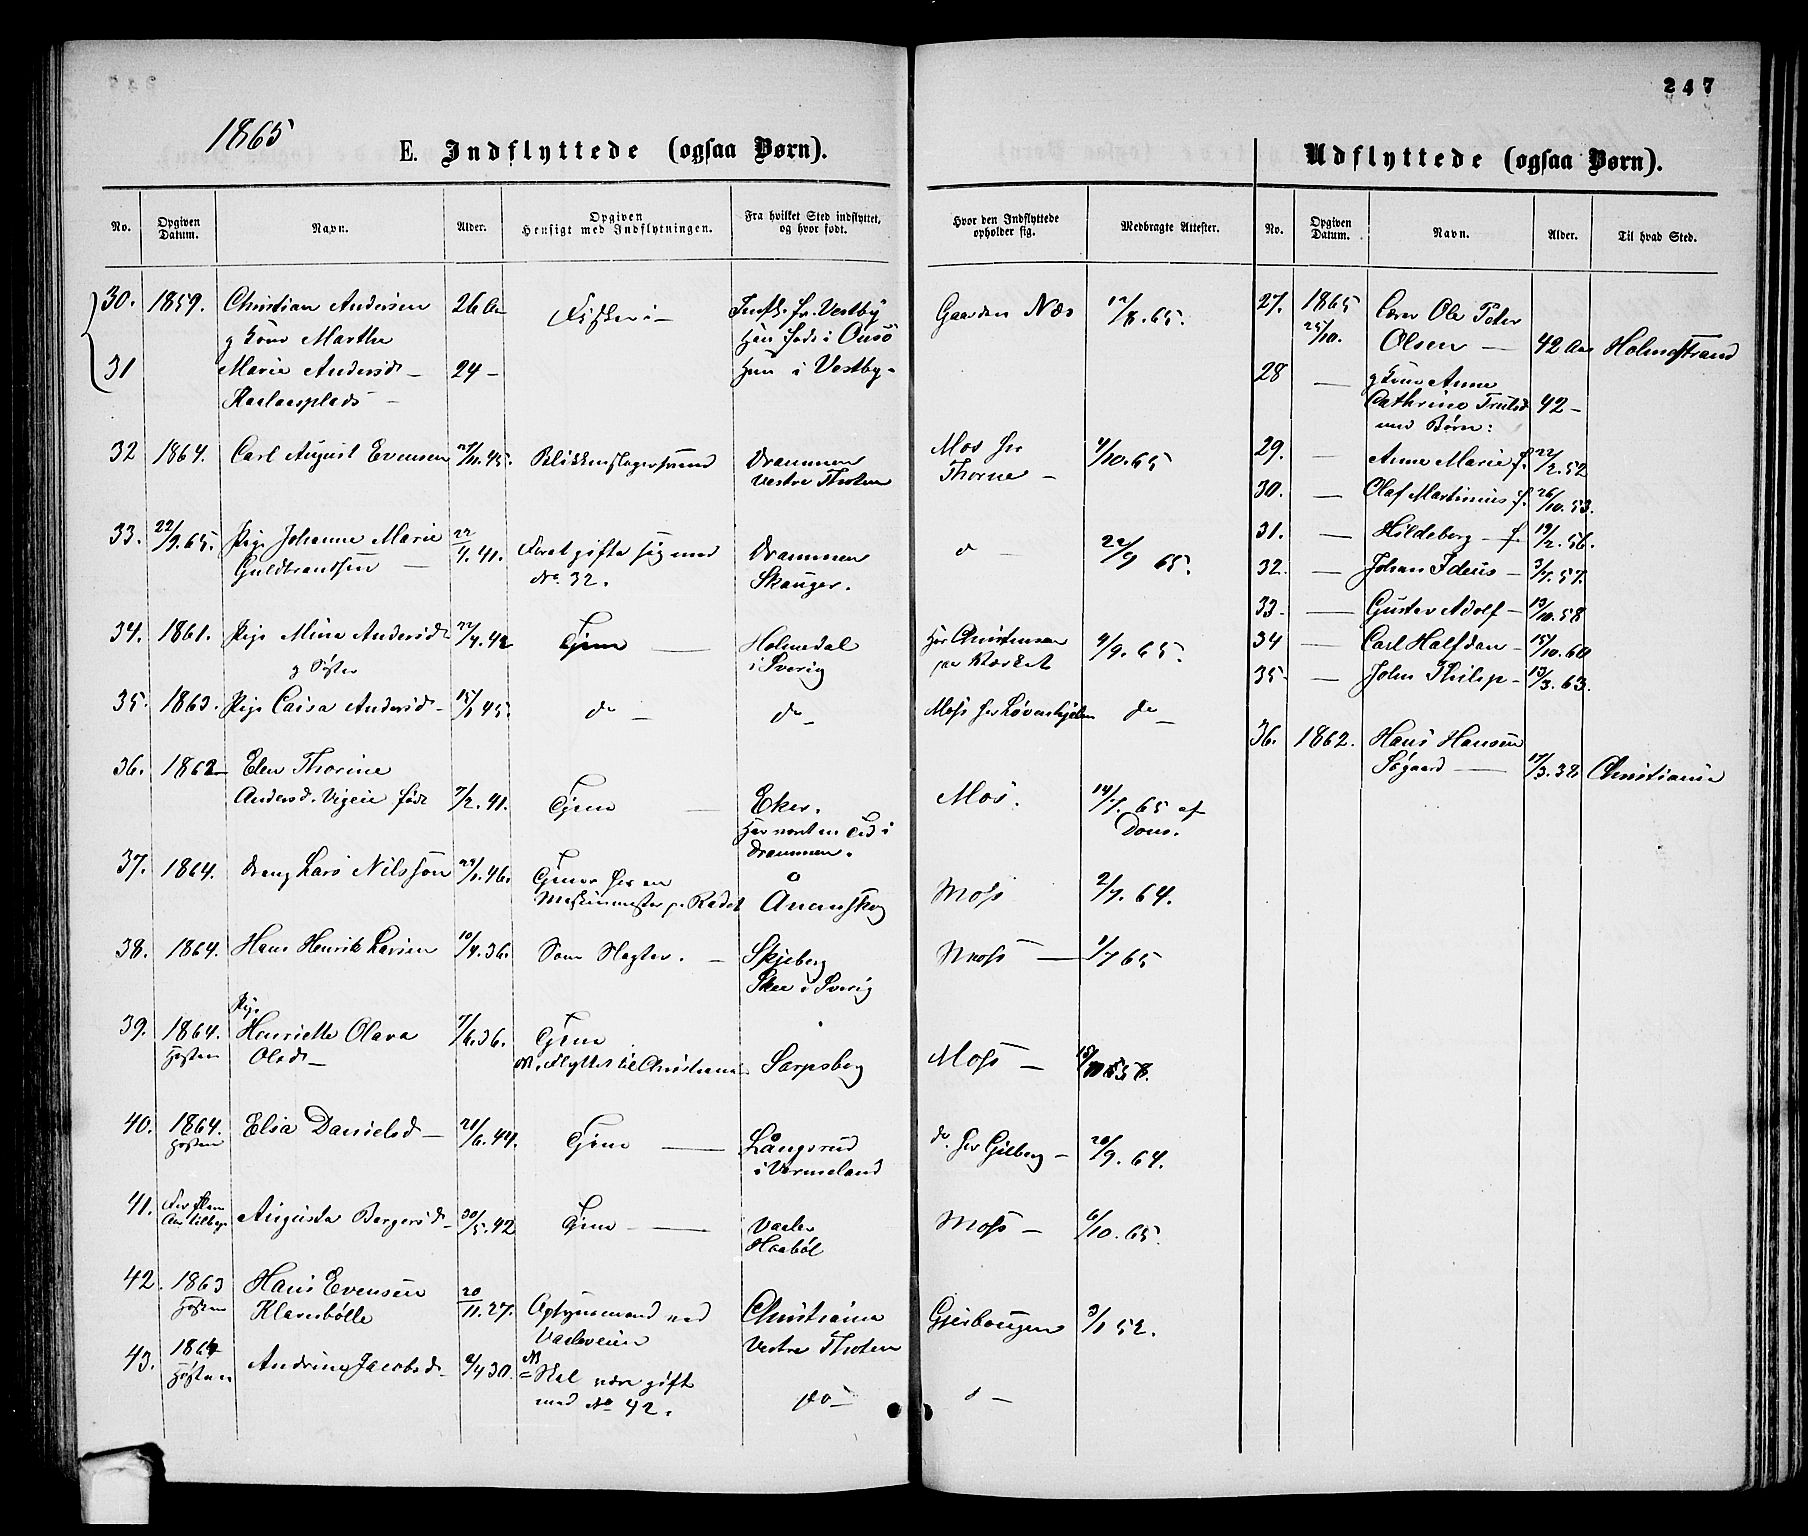 247
1865
E. Indflyttede (ogsaa Børn).
Udflyttede (ogsaa Børn).
No. Opgiven Datum. Navn. Alder. Opgiven Hensigt med Indflytningen. Fra hvilket Sted indflyttet, og hvor født. Hvor den Indflyttede opholder sig. Medbragte Attester.
No. Opgiven Datum. Navn. Alder. Til hvad Sted.
30. 1859. Christian Andersen 26 Aar Fiskeri Indfl. fr. Vestby Gaarden Næs 12/8. 65.
g Kone Marthe Han født i Onsø
31 Marie Andersd. 24 Hun i Vestby
32 1864. Carl August Evensen 27/11. 45. Blikkenslagersvend Drammen Mos hr 4/10. 65
Vestre Thoten Thorne
33. 22/9. 65. Pige Johanne Marie 22/4. 41. Agt gifte sig med Drammen do 22/9 65.
Guldbrandsen No 32. Skauger.
34. 1861. Pige Mina Andersd. 22/4. 42 Tjene Holmedal Hr Christensen 9/9. 65.
g Søster i Sverig paa Værket
35. 1863. Pige Caisa Andersd. 15/1 45. do do Moss do
36. 1862 Elen Thorine
Andersd. Vigeie født 7/2. 41. Tjene Eker. Mos. 14/7. 65 af
Har været en Tid i Dons.
Drammen.
37. 1864. Dreng Lars Nilsson 29/1. 46. Tjener hos en Moss 2/7. 64.
Maskinmester Ånimskog
38. 1864. Hans Henrik Larsen 10/4. 36. Som Slagter. Skjeberg Moss 1/7 65
Skee i Sverig
Pige
39. 1864. Henriette Olava 7/6. 36. Tjene
Høsten Olsd. NB. Flyttet til Christiania Sarpsborg Moss
40. 1864. Elisa Danielsd. 21/6. 44. Tjene Långserud do hos Gilberg 20/9. 64.
Høsten i Vermeland
41. Augusta Borgersd. 30/5. 42 Tjene Vaaler Moss 6/10. 65.
Haabøl
42. 1863 Hans Evensen 20/11. 27. Opsynsmand ved Christiania Gjerbougen 3/1 52.
Høsten Klarebølle Varleveien Vestre Thoten
43. 1864 Andrine Jacobsd. 9/4 30. NB Skal være gift do do
Høsten med No 42.
27. 1865 Ole Peter
25/10. Olsen 42 Aar Holmestrand
28 g Kone Anne
Cathrine Trulsd. 42
med Børn:
29. Anne Marie f. 22/2. 52
30. Olaf Martinius f. 26/10. 53.
31. Hildeborg f 19/2. 56.
32. Johan Ideus 3/7. 57.
33. Gustav Adolf 13/10. 58
34 Carl Halfdan 15/10. 60
35 John Philip 13/3. 63.
36. 1862. Hans Hansen
Søgaard 17/3. 38 Christiania